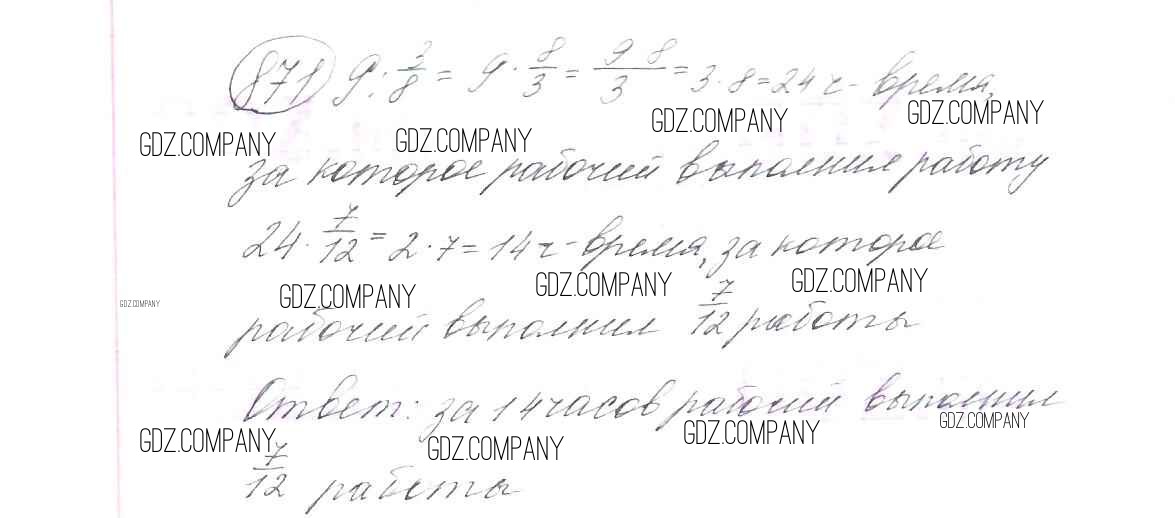 871 9 : 3/8 = 9 · 8/3 = 9 8/3 = 3 · 8 = 24 ч - время,
GDZ.COMPANY GDZ.COMPANY GDZ.COMPANY GDZ.COMPANY
за которое рабочий выполнил работу
24 · 7/12 = 2 · 7 = 14 ч - время, за которое
GDZ.COMPANY GDZ.COMPANY GDZ.COMPANY GDZ.COMPANY
рабочий выполнил 7/12 работы
Ответ: за 14 часов рабочий выполнил
GDZ.COMPANY GDZ.COMPANY GDZ.COMPANY GDZ.COMPANY
7/12 работы